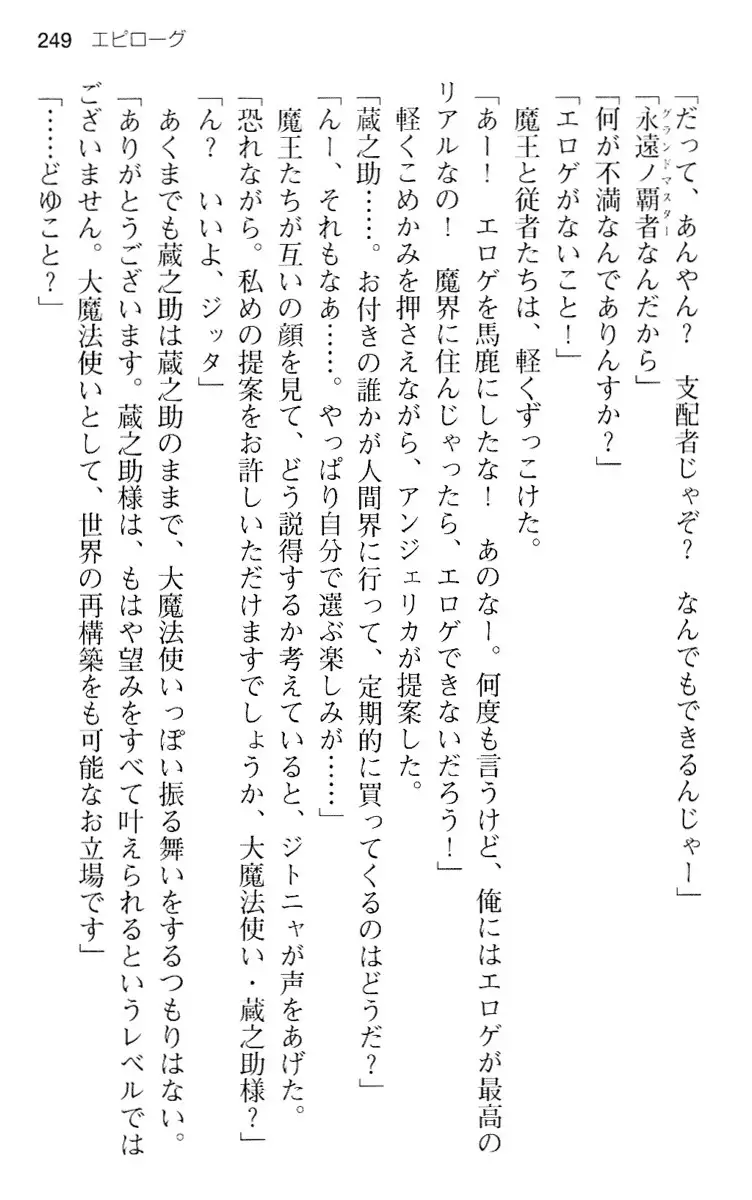 249 エピローグ
「だって、あんやん？　支配者じゃぞ？　なんでもできるんじゃー」
「永遠ノ覇者なんだから」
グランドマスター
「何が不満なんでありんすか？」
「エロゲがないこと！」
魔王と従者たちは、軽くずっこけた。
「あー！　エロゲを馬鹿にしたな！　あのなー。何度も言うけど、俺にはエロゲが最高の
リアルなの！　魔界に住んじゃったら、エロゲできないだろう！」
軽くこめかみを押さえながら、アンジェリカが提案した。
「蔵之助……。お付きの誰かが人間界に行って、定期的に買ってくるのはどうだ？」
「んー、それもなあ……。やっぱり自分で選ぶ楽しみが……」
魔王たちが互いの顔を見て、どう説得するか考えていると、ジトニャが声をあげた。
「恐れながら。私めの提案をお許しいただけますでしょうか、大魔法使い・蔵之助様？」
「ん？　いいよ、ジッタ」
あくまでも蔵之助は蔵之助のままで、大魔法使いっぽい振る舞いをするつもりはない。
「ありがとうございます。蔵之助様は、もはや望みをすべて叶えられるというレベルでは
ございません。大魔法使いとして、世界の再構築をも可能なお立場です」
「……どゆこと？」